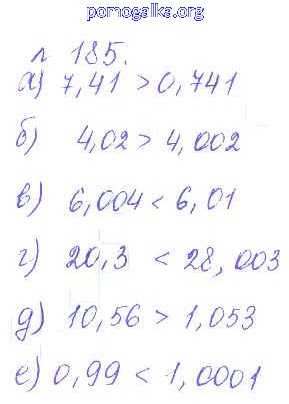 pomogalka.org
л 185.
а) 7,41 > 0,741
б) 4,02 > 4,002
в) 6,004 < 6,01
г) 20,3 < 28,003
д) 10,56 > 1,053
е) 0,99 < 1,0001